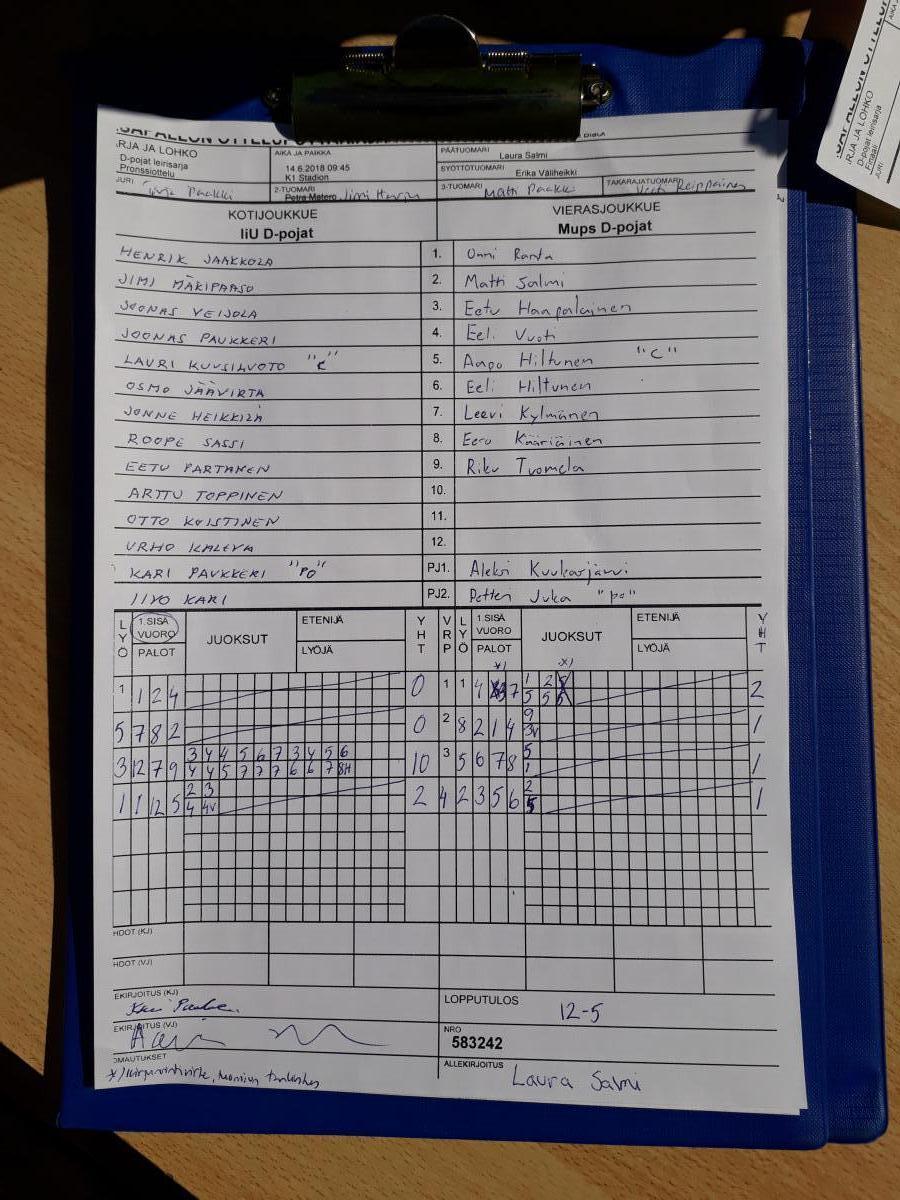 RJA JA LOHKO
D-pojat leirisarja
Pronssiottelu
AIKA JA PAIKKA
14.6.2018 09:45
K1 Stadion
PÄÄTUOMARI
Laura Salmi
SYÖTTÖTUOMARI
Erika Väliheikki
JURI
Paakki
2-TUOMARI
Petra Matero
Jimi
3-TUOMARI
Matti Paakki
TAKARAJATUOMARI
KOTIJOUKKUE
IiU D-pojat
VIERASJOUKKUE
Mups D-pojat
HENRIK JAAKKOLA 1. Onni Ranta
JIMI MÄKIPAASO 2. Matti Salmi
JOONAS VEIJOLA 3. Eetu Haapalainen
JOONAS PAUKKERI 4. Eeli Vuoti
LAURI KUUSILUOTO "C" 5. Aapo Hiltunen "C"
OSMO JÄÄVIRTA 6. Eeli Hiltunen
JONNE HEIKKILÄ 7. Leevi Kylmänen
ROOPE SASSI 8. Eero Kääriäinen
EETU PARTANEN 9. Riku Tuomela
ARTTU TOPPINEN 10.
OTTO KOISTINEN 11.
URHO KALEVA 12.
KARI PAUKKERI "PO" PJ1. Aleksi Kuukasjärvi
IIVO KARI PJ2. Petteri Juka "po"
LYÖ 1.SISÄ VUORO PALOT JUOKSUT ETENIJÄ LYÖJÄ YHT VRP LYÖ 1.SISÄ VUORO PALOT JUOKSUT ETENIJÄ LYÖJÄ YHT
*) *)
1 1 2 4 0 1 1 4 7 1 2 5 2
5 5 5
5 7 8 2 0 2 8 2 1 4 9 1
3v
3 12 7 9 3 4 4 5 6 7 3 4 5 6 10 3 5 6 7 8 5 1
4 4 5 7 7 7 6 6 7 8H 1
1 1 12 5 2 3 2 4 2 3 5 6 2 1
4 4v 5
HDOT (KJ)
HDOT (VJ)
EKIRJOITUS (KJ)
EKIRJOITUS (VJ)
OMAUTUKSET
*) kirjurivirhe,
LOPPUTULOS
12-5
NRO
583242
ALLEKIRJOITUS
Laura Salmi
RJA JA LOHKO
D-pojat leirisarja
Finaali
JURI